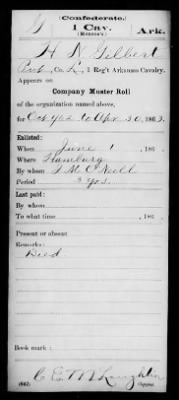 (Confederate.)
G 1 Cav. Ark.
(Monroe's)
H N Gilbert
Pvt, Co. L, 1 Reg't Arkansas Cavalry.
Appears on
Company Muster Roll
of the organization named above,
for Oct 9/62 to Apr 30, 1863.
Enlisted:
When June 1, 186
Where Hamburg
By whom McNeill
Period 3 yrs.
Last paid:
By whom
To what time , 186
Present or absent
Remarks:
Died
Book mark:
C. E. McLaughlin
(642) Copyist.